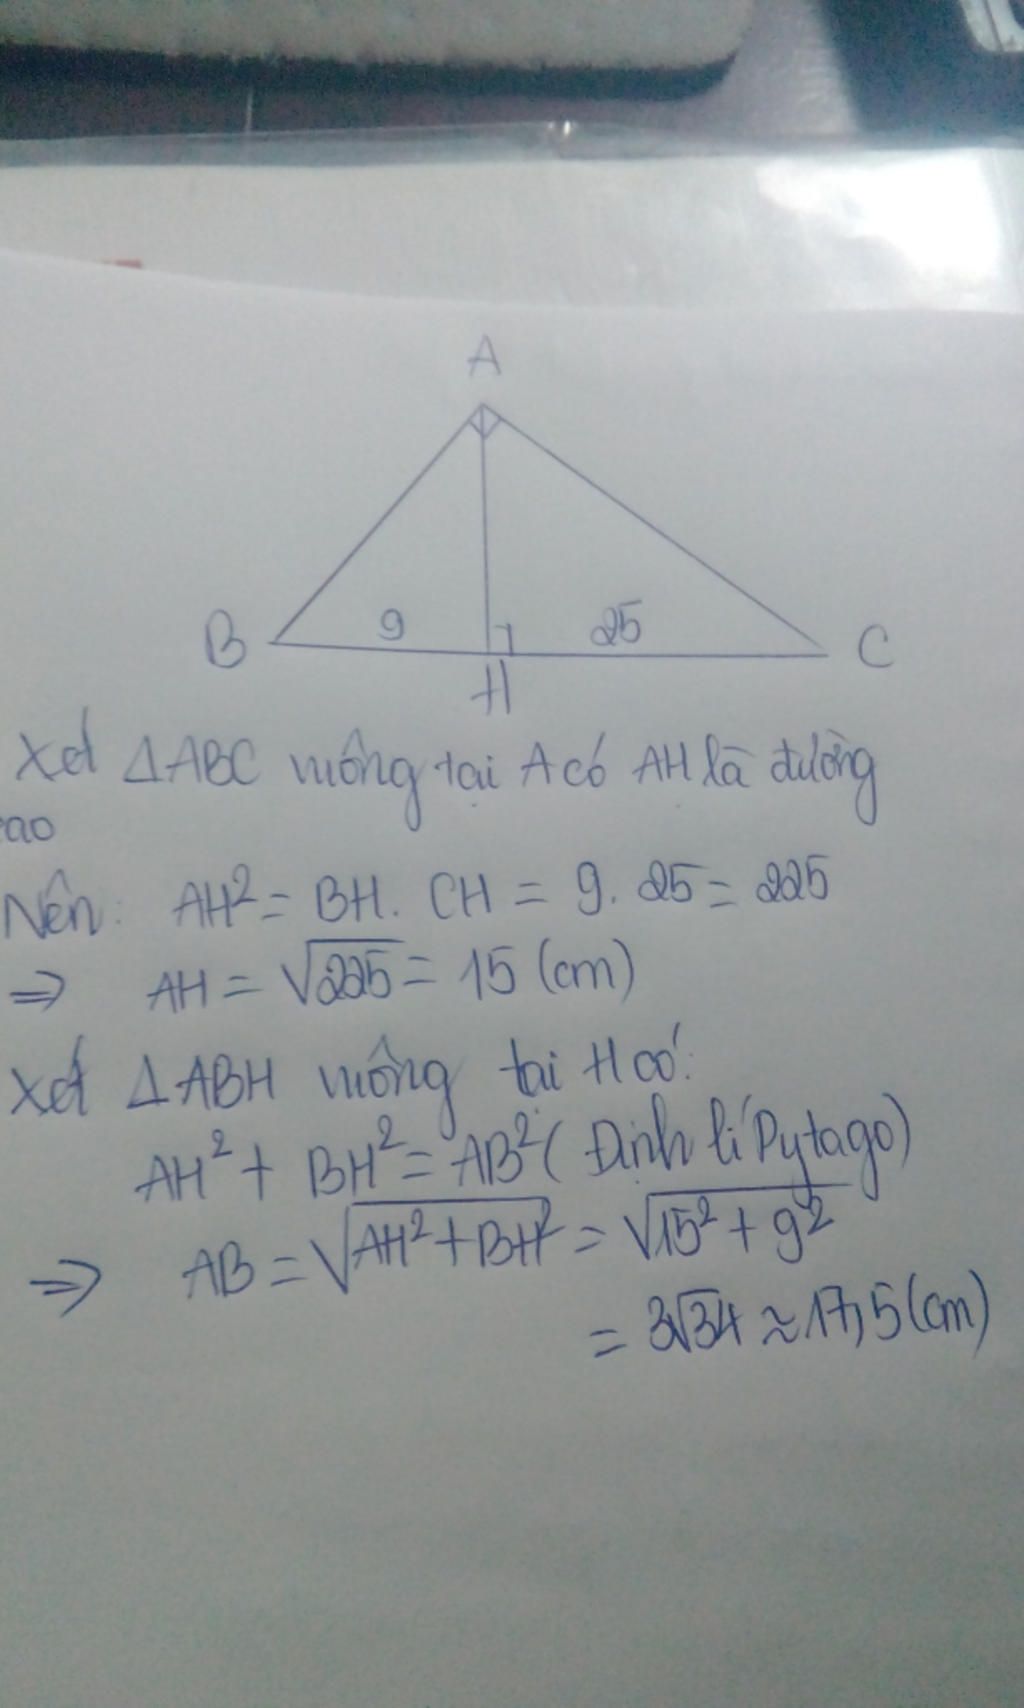 A
B 9 25 C
H
Xét ΔABC vuông tại A có AH là đường
cao
Nên: AH² = BH. CH = 9. 25 = 225
⇒ AH = √225 = 15 (cm)
Xét ΔABH vuông tại H có:
AH² + BH² = AB² ( Định lí Pytago)
⇒ AB = √AH² + BH² = √15² + 9²
= 3√34 ≈ 17,5 (cm)